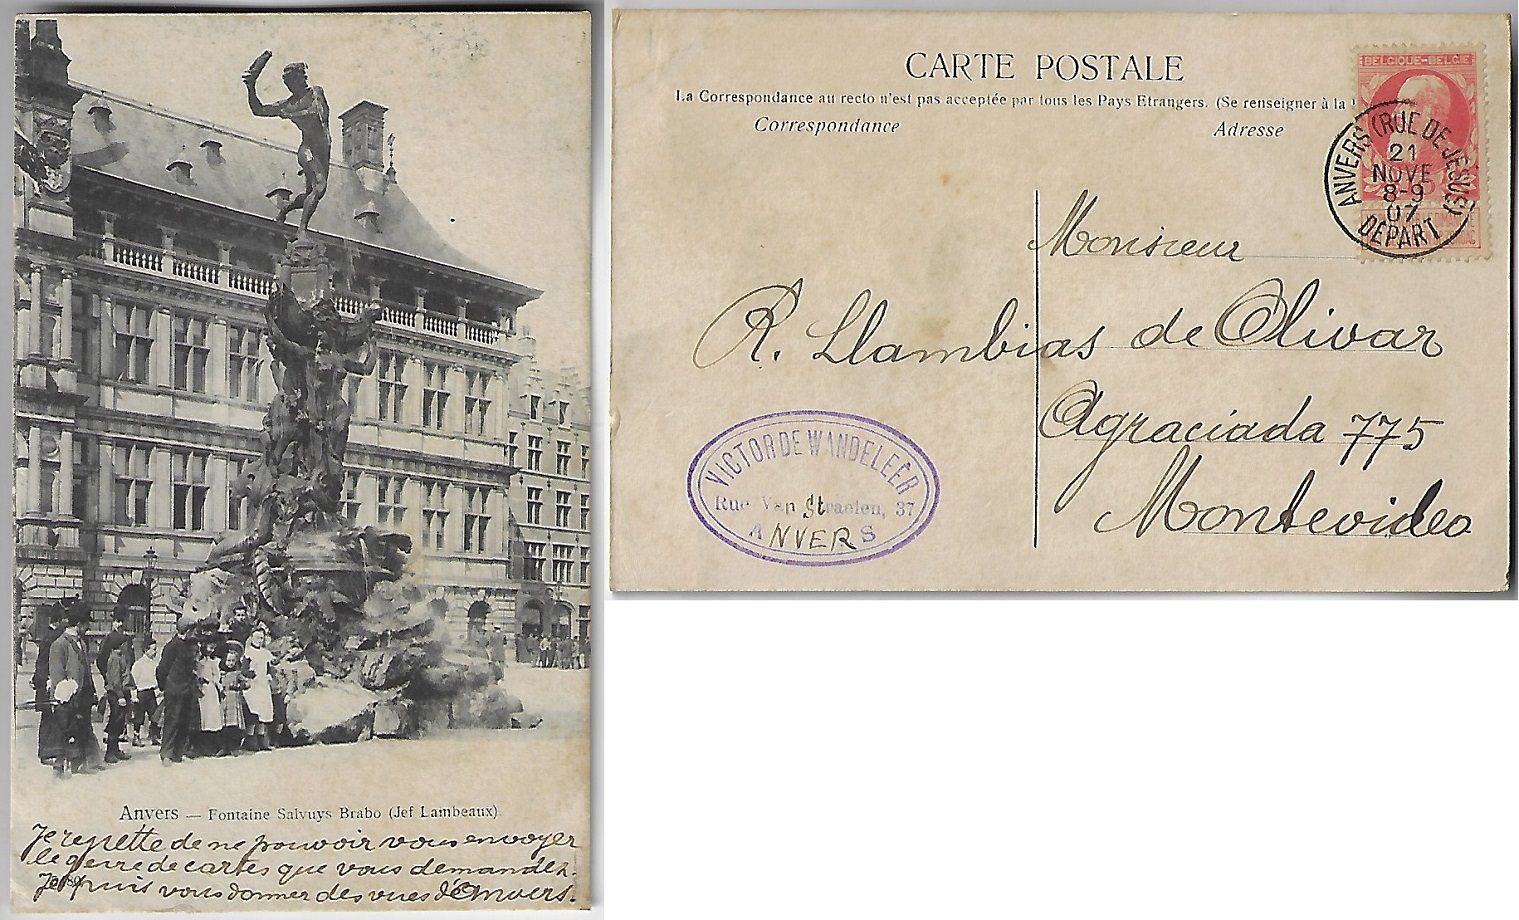 Anvers — Fontaine Salvuys Brabo (Jef Lambeaux)
Je regrette de ne pouvoir vous envoyer
le genre de cartes que vous demandez.
Je puis vous donner des vues d'Anvers.
CARTE POSTALE
La Correspondance au recto n'est pas acceptée par tous les Pays Etrangers. (Se renseigner à la
Correspondance
Adresse
BELGIQUE-BELGIË
ANVERS (RUE DE JÉSUS)
21
NOVE
8-9
07
DEPART
Monsieur
R. Llambias de Olivar
Agraciada 775
Montevideo
VICTOR DE WANDELEER
Rue Van Straelen, 37
ANVERS